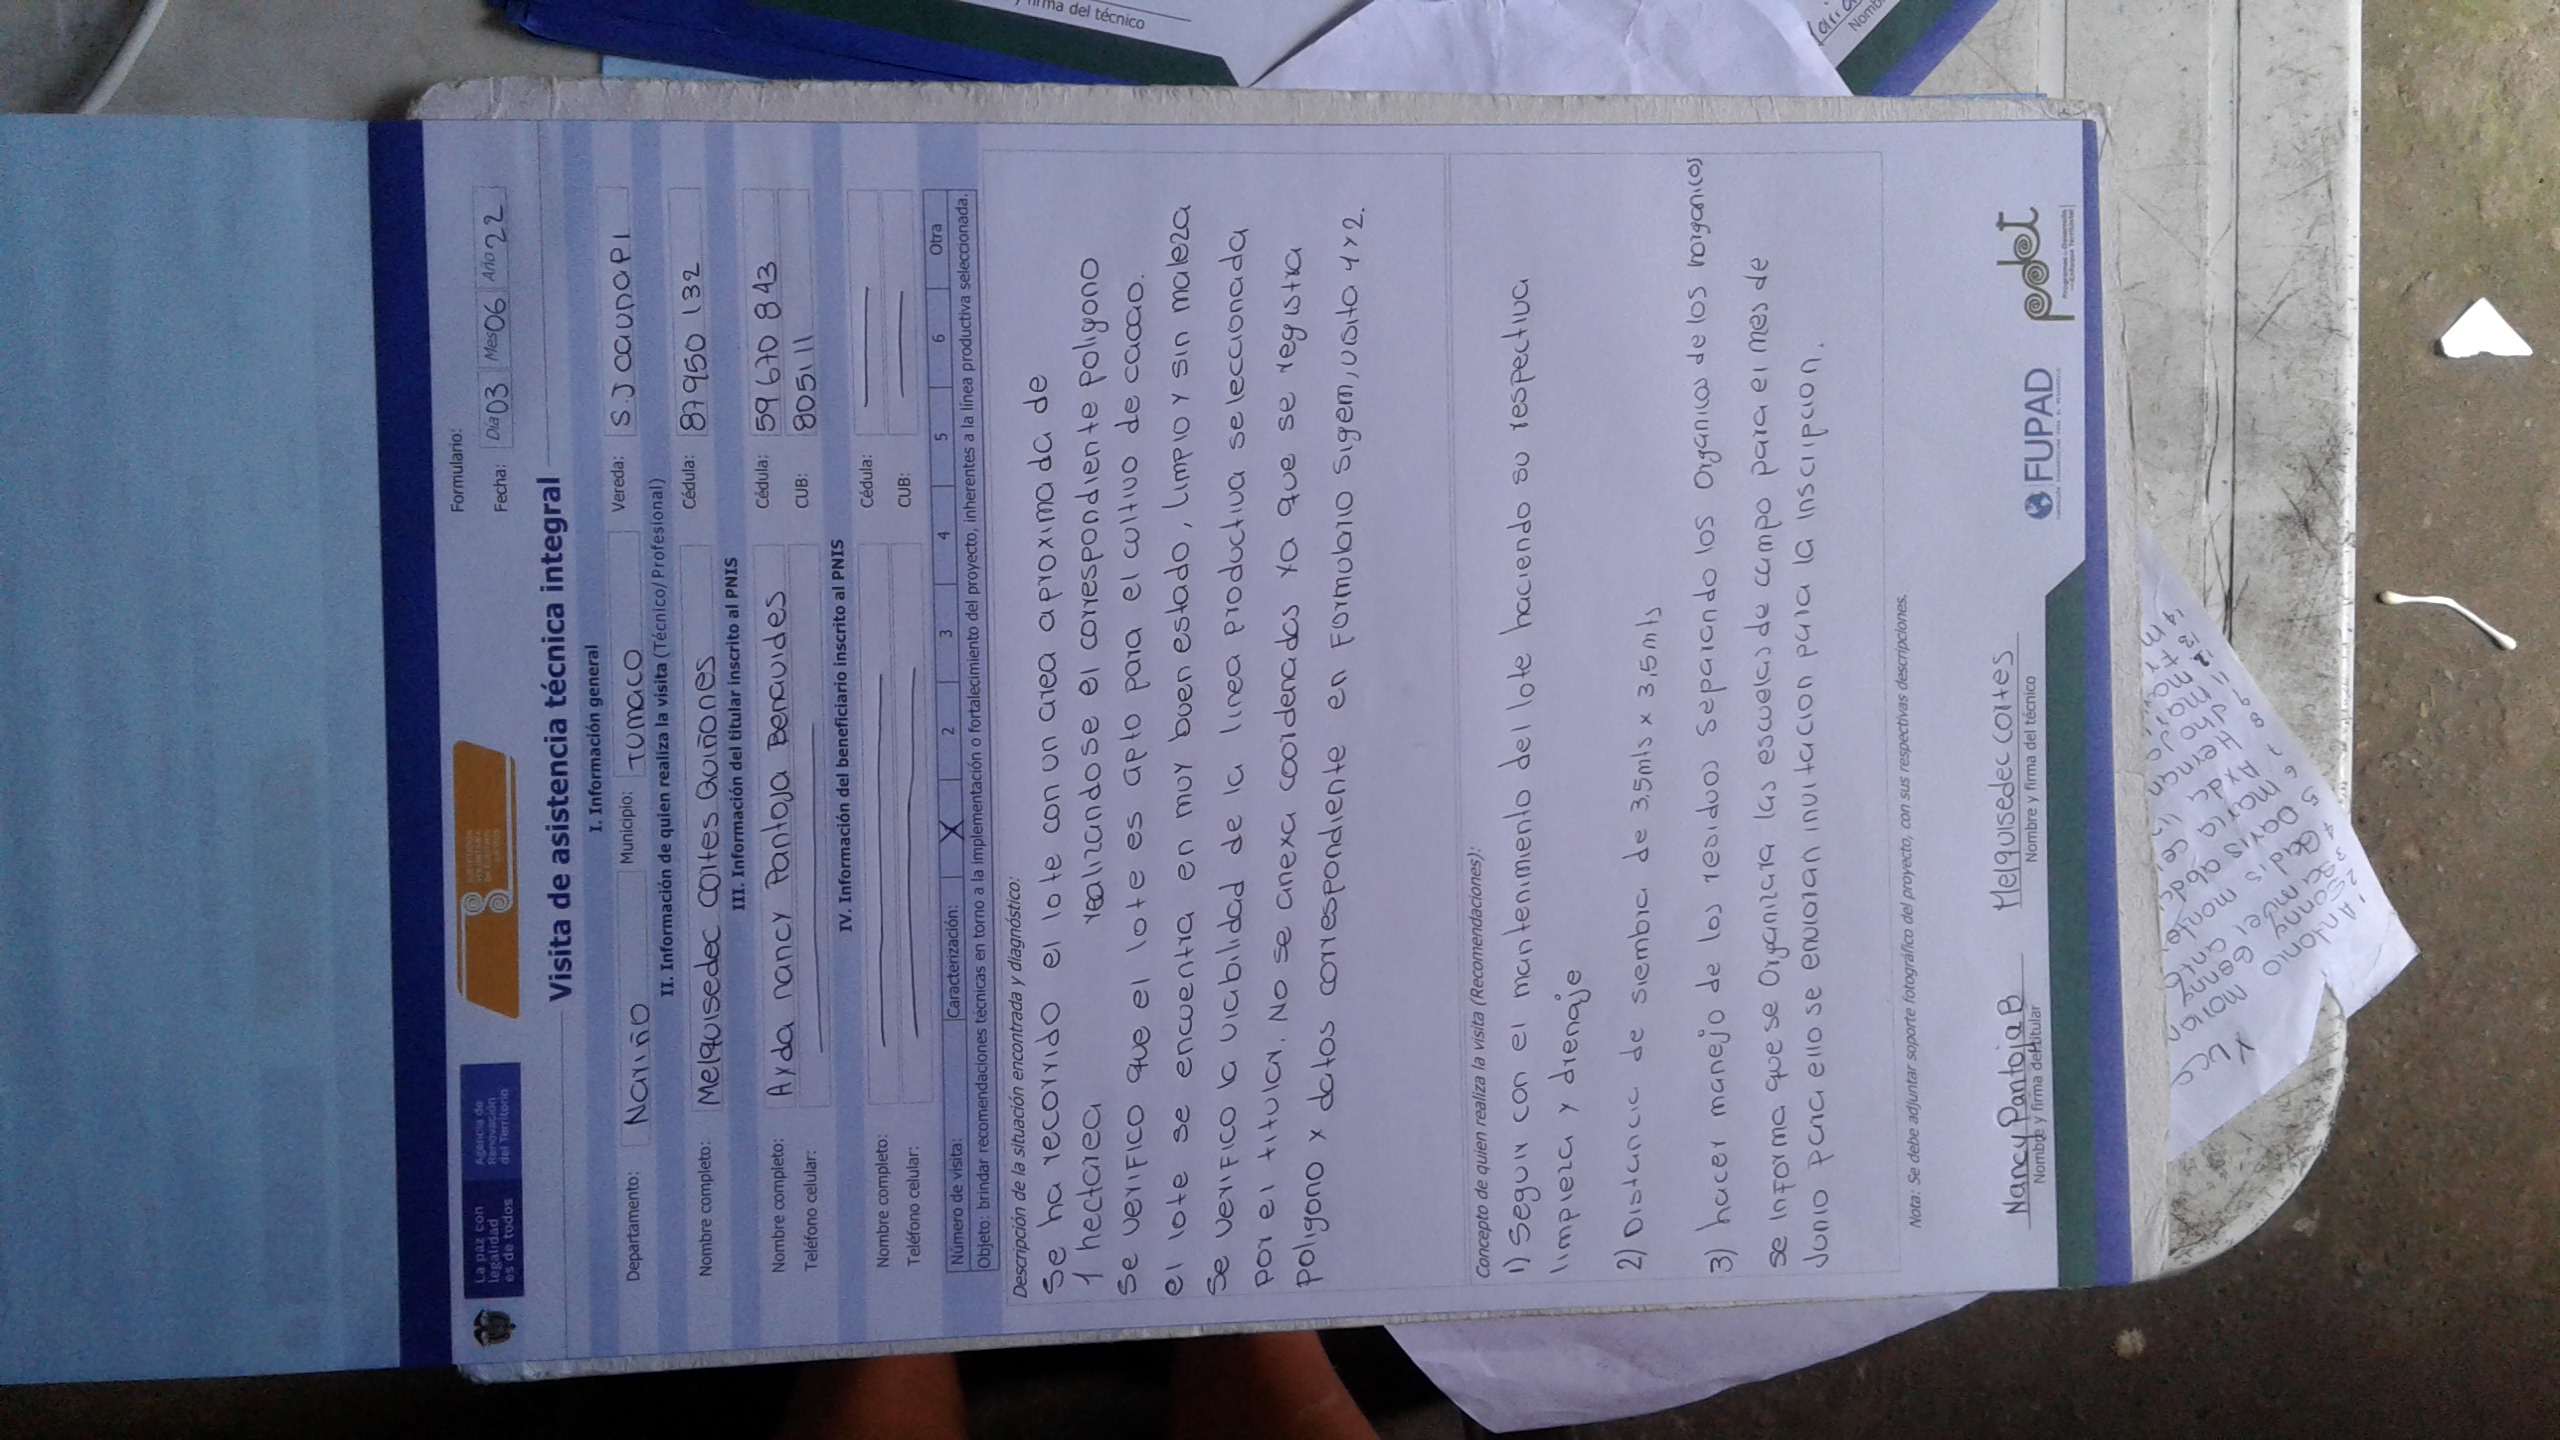 La paz con
legalidad
es de todos
Agencia de
Renovación
del Territorio
Formulario:
Fecha: Día 03 Mes 06 Año 22
Visita de asistencia técnica integral
I. Información general
Departamento: Nariño Municipio: Tumaco Vereda: S.J caunapi
II. Información de quien realiza la visita (Técnico/Profesional)
Nombre completo: Melquisedec cortes Quiñones Cédula: 87950 132
III. Información del titular inscrito al PNIS
Nombre completo: Ayda nancy Pantoja Benavides Cédula: 59 670 843
Teléfono celular: CUB: 805111
IV. Información del beneficiario inscrito al PNIS
Nombre completo: Cédula:
Teléfono celular: CUB:
Número de visita: Caracterización: X 2 3 4 5 6 Otra
Objeto: brindar recomendaciones técnicas en torno a la implementación o fortalecimiento del proyecto, inherentes a la línea productiva seleccionada.
Descripción de la situación encontrada y diagnóstico:
Se ha recorrido el lote con un area aproximada de
1 hectarea realizandose el correspondiente poligono
Se verifico que el lote es apto para el cultivo de cacao.
el lote se encuentra en muy buen estado, limpio y sin maleza
Se verifico la viabilidad de la linea productiva seleccionada
por el titular. No se anexa coordenadas ya que se registra
poligono y datos correspondiente en Formulario sigem, visita 1 y 2.
Concepto de quien realiza la visita (Recomendaciones):
1) Seguir con el mantenimiento del lote haciendo su respectiva
limpieza y drenaje
2) Distancic de siembra de 3,5mts x 3,5mts
3) hacer manejo de los residuos separando los organicos de los inorganicos
se informa que se organizara las escuelas de campo para el mes de
Junio para ello se enviaran invitacion para la inscipcion.
Nota: Se debe adjuntar soporte fotográfico del proyecto, con sus respectivas descripciones.
Nancy Pantoja B Melquisedec cortes
Nombre y firma del titular Nombre y firma del técnico
FUPAD
pdet
y firma del técnico